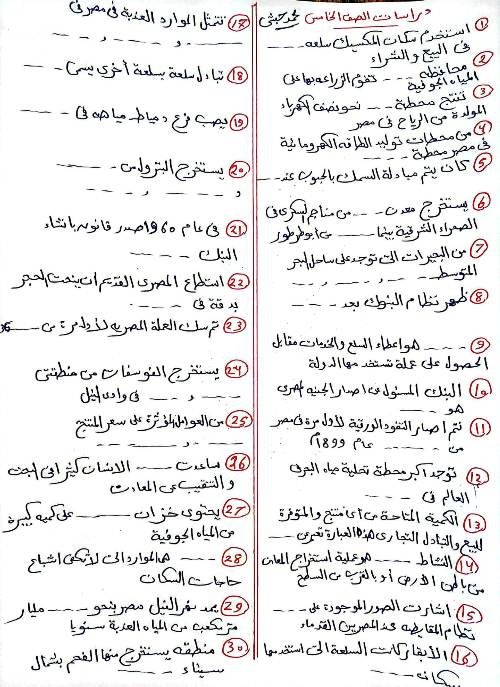 دراسات الصف الخامس
① استخدم سكان المكسيك سلعة ----
فى البيع والشراء
② محافظة ---- تقوم الزراعة بها على
المياه الجوفية
③ تنتج محطة ---- نحو نصف الكهرباء
المولدة من الرياح فى مصر
④ من محطات توليد الطاقة الكهرومائية
فى مصر محطة ----
⑤ كان يتم مبادلة السمك بالحبوب عند ----
⑥ يستخرج معدن ---- من مناجم السكرى فى
الصحراء الشرقية بينما ---- من ابو طرطور
⑦ من البحيرات التى توجد على ساحل البحر
المتوسط ---- , ---- , ----
⑧ ظهر نظام البنوك بعد ----
⑨ ---- هو اعطاء السلع والخدمات مقابل
الحصول على عملة تستخدمها الدولة
⑩ البنك المسئول عن اصدار الجنيه المصرى
هو ----
⑪ تم اصدار النقود الورقية لأول مرة فى مصر
من ---- عام 1899م
⑫ توجد أكبر محطة تحلية مياه البحر فى
العالم فى ----
⑬ الكمية المتاحة من أى منتج والمؤثرة
للبيع والتبادل التجارى هذه العبارة تعبر عن ----
⑭ النشاط ---- هو عملية استخراج المعادن
من باطن الأرض أو بالقرب من السطح
⑮ اشارت الصور الموجودة على ----
نظام المقايضة عند المصريين القدماء
⑯ الأبقار كانت السلعة التى استخدمها
سكان ----
⑰ تتمثل الموارد العذبة فى مصر فى
---- , ---- , ----
⑱ تبادل سلعة بسلعة أخرى يسمى ----
⑲ يصب فرع دمياط مياهه فى ----
⑳ يستخرج البترول من ----
و ---- , ----
㉑ فى عام 1960 صدر قانون بانشاء
البنك ----
㉒ استطاع المصرى القديم ان ينحت الحجر
بدقة فى ----
㉓ تم سك العملة المصرية لأول مرة من ----
㉔ يستخرج الفوسفات من منطقتى
---- و ---- فى وادى النيل
㉕ من العوامل المؤثرة على سعر المنتج
---- , ----
㉖ ساعدت ---- الانسان كثيرا فى البحث
والتنقيب عن المعادن
㉗ يحتوى خزان ---- على كمية كبيرة
من المياه الجوفية
㉘ ---- هى الموارد التى لا تكفى اشباع
حاجات السكان
㉙ يمد نهر النيل مصر بنحو ---- مليار
متر مكعب من المياه العذبة سنويا
㉚ منطقة يستخرج منها الفحم بشمال
سيناء ----